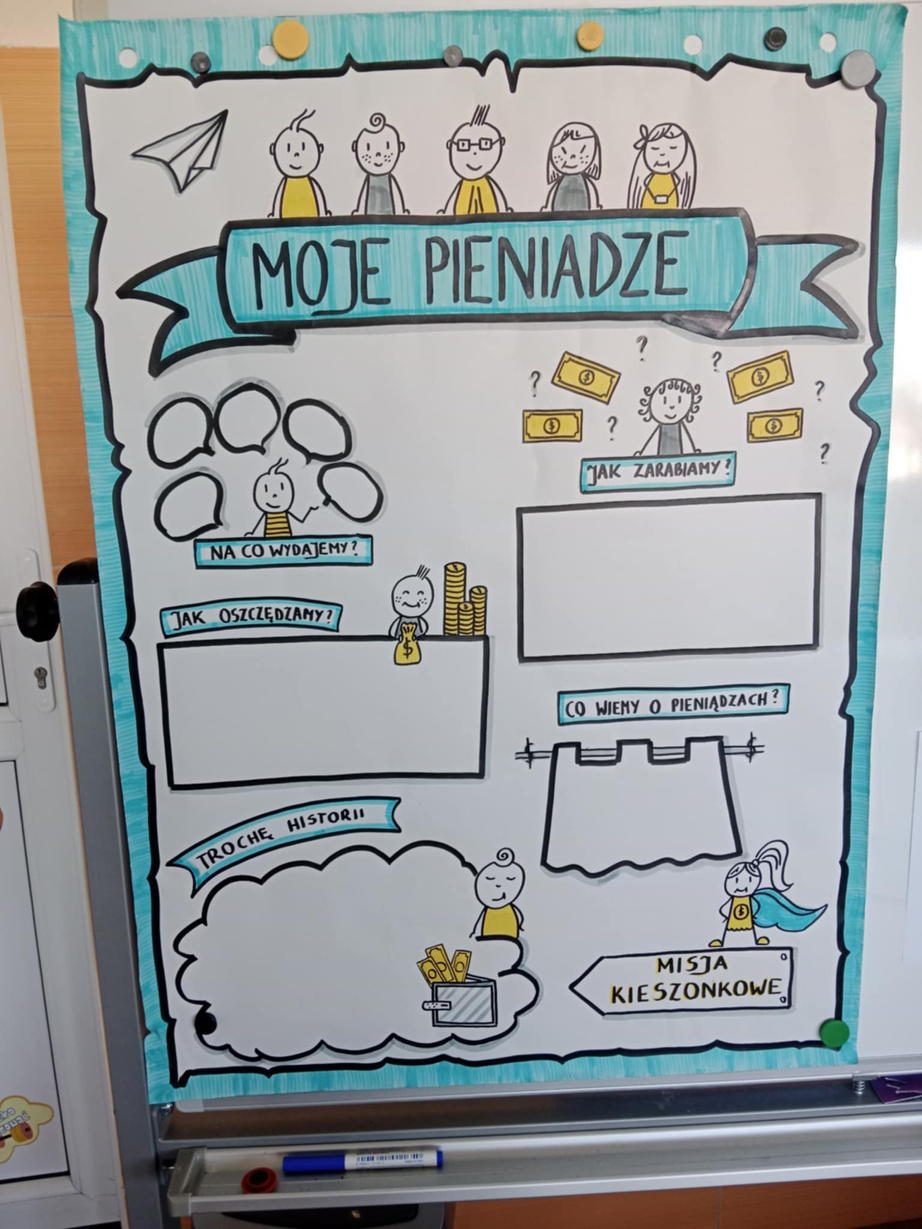 MOJE PIENIADZE
JAK ZARABIAMY?
NA CO WYDAJEMY?
JAK OSZCZĘDZAMY?
CO WIEMY O PIENIĄDZACH?
TROCHĘ HISTORII
MISJA
KIESZONKOWE